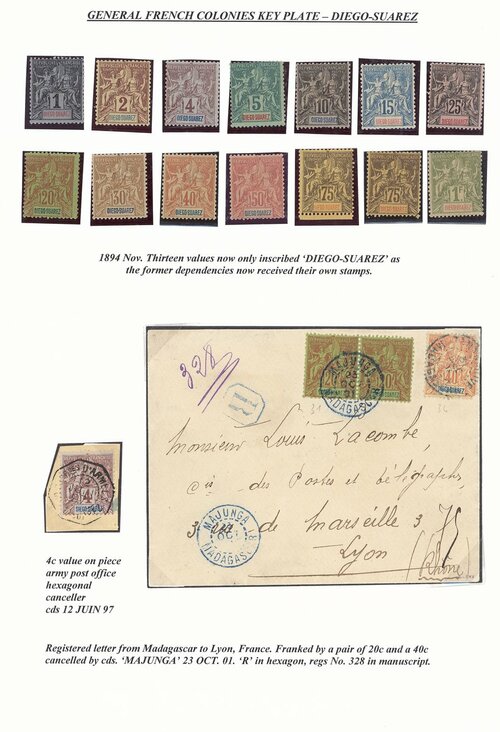 GENERAL FRENCH COLONIES KEY PLATE – DIEGO-SUAREZ
1 2 4 5 10 15 25
DIEGO-SUAREZ DIEGO-SUAREZ DIEGO-SUAREZ DIEGO-SUAREZ DIEGO-SUAREZ DIEGO-SUAREZ DIEGO-SUAREZ
20 30 40 50 75 75 1
DIEGO-SUAREZ DIEGO-SUAREZ DIEGO-SUAREZ DIEGO-SUAREZ DIEGO-SUAREZ DIEGO-SUAREZ DIEGO-SUAREZ
1894 Nov. Thirteen values now only inscribed ‘DIEGO-SUAREZ’ as
the former dependencies now received their own stamps.
328
MAJUNGA
MADAGASCAR
R
Monsieur Louis Lacombe
des Postes et télégraphes
3 de Marseille 3
Lyon
(Rhône)
MAJUNGA
MADAGASCAR
4
4c value on piece
army post office
hexagonal
canceller
cds 12 JUIN 97
Registered letter from Madagascar to Lyon, France. Franked by a pair of 20c and a 40c
cancelled by cds. ‘MAJUNGA’ 23 OCT. 01. ‘R’ in hexagon, regs No. 328 in manuscript.